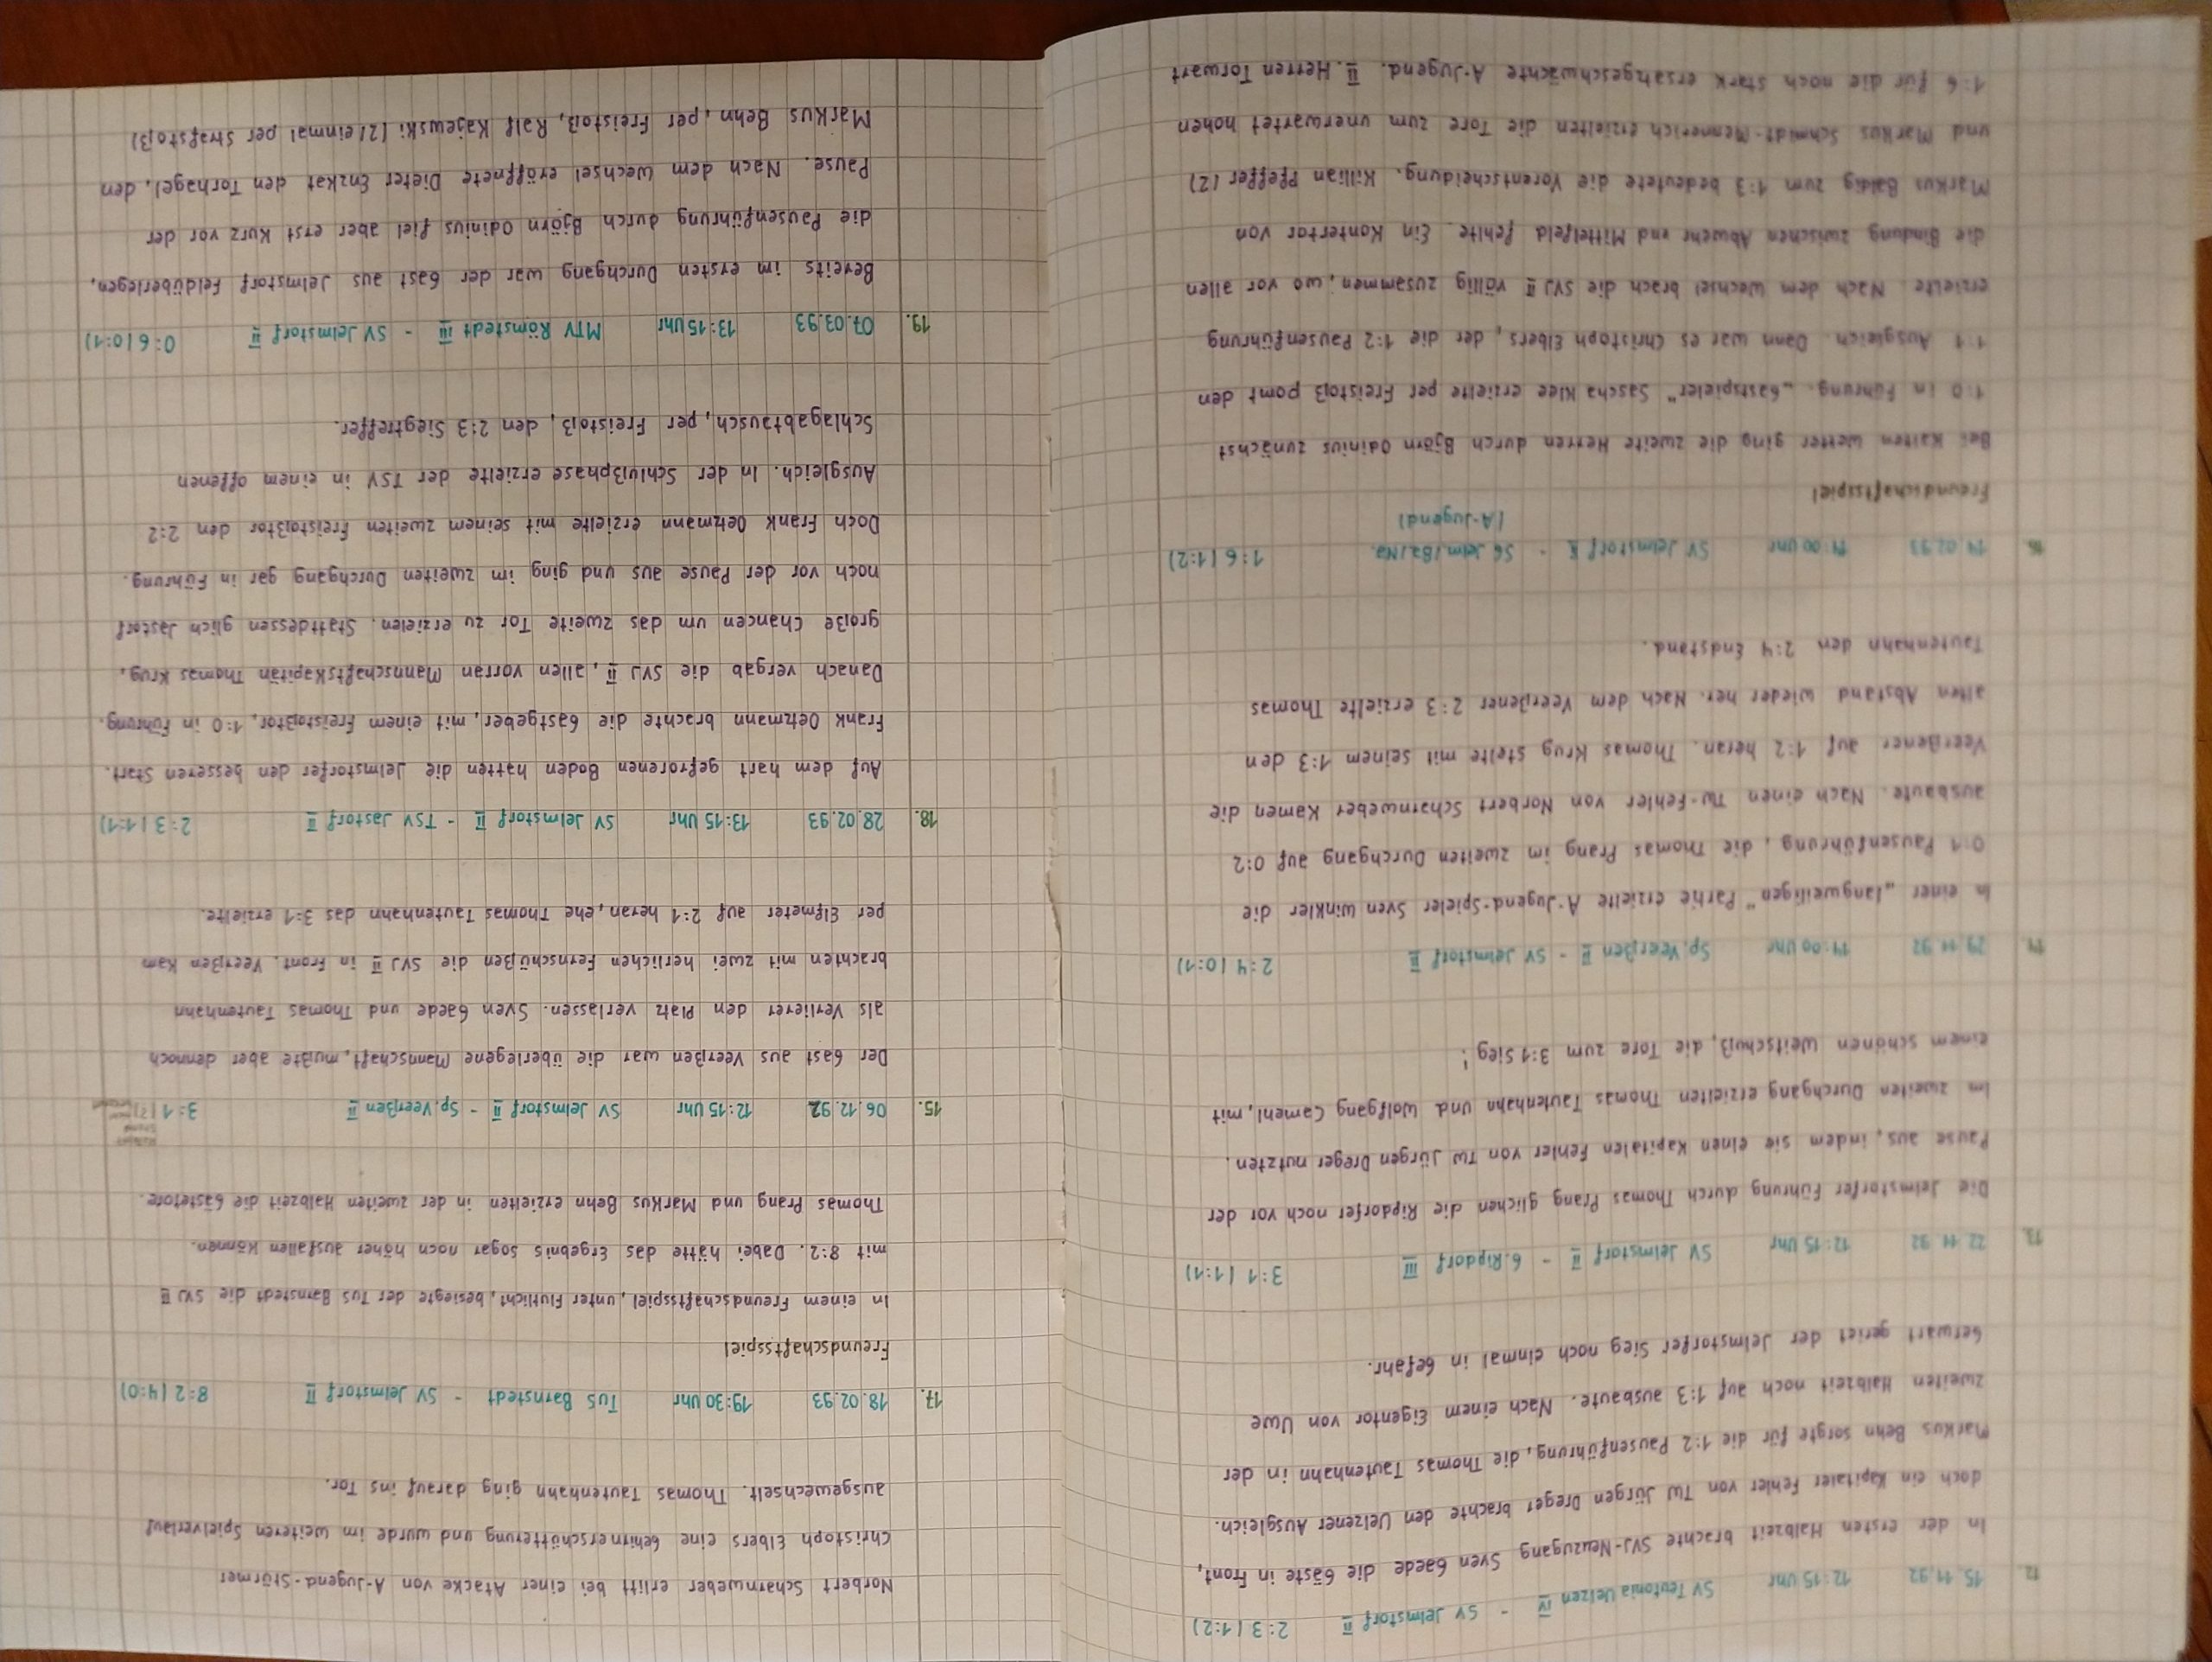 12. 15.11.92 12:15 Uhr SV Teutonia Uelzen IV - SV Jelmstorf II 2:3 (1:2)
In der ersten Halbzeit brachte SVJ-Neuzugang Sven Gaede die Gäste in Front,
doch ein Kapitaler Fehler von TW Jürgen Dreger brachte den Uelzener Ausgleich.
Markus Behn sorgte für die 1:2 Pausenführung, die Thomas Tautenhahn in der
zweiten Halbzeit noch auf 1:3 ausbaute. Nach einem Eigentor von Uwe
Gerwart geriet der Jelmstorfer Sieg noch einmal in Gefahr.
13. 22.11.92 12:15 Uhr SV Jelmstorf II - G. Ripdorf III 3:1 (1:1)
Die Jelmstorfer Führung durch Thomas Prang glichen die Ripdorfer noch vor der
Pause aus, indem sie einen Kapitalen Fehler von TW Jürgen Dreger nutzten.
Im zweiten Durchgang erzielten Thomas Tautenhahn und Wolfgang Camehl, mit
einem schönen Weitschuß, die Tore zum 3:1 Sieg!
14. 29.11.92 14:00 Uhr Sp. Veerßen II - SV Jelmstorf II 2:4 (0:1)
In einer „langweiligen" Partie erzielte A-Jugend-Spieler Sven Winkler die
0:1 Pausenführung, die Thomas Prang im zweiten Durchgang auf 0:2
ausbaute. Nach einen TW-Fehler von Norbert Scharnweber Kamen die
Veerßener auf 1:2 heran. Thomas Krug stellte mit seinem 1:3 den
alten Abstand wieder her. Nach dem Veerßener 2:3 erzielte Thomas
Tautenhahn den 2:4 Endstand.
16. 14.02.93 14:00 Uhr SV Jelmstorf II - SG Jelm./Ba/Na. 1:6 (1:2)
(A-Jugend)
Freundschaftsspiel
Bei Kalten Wetter ging die zweite Herren durch Björn Odinius zunächst
1:0 in Führung. „Gastspieler" Sascha Klee erzielte per Freistoß pomt den
1:1 Ausgleich. Dann war es Christoph Elbers, der die 1:2 Pausenführung
erzielte. Nach dem Wechsel brach die SVJ II völlig zusammen, wo vor allen
die Bindung zwischen Abwehr und Mittelfeld fehlte. Ein Kontertor von
Markus Baldig zum 1:3 bedeutete die Vorentscheidung. Killian Pfeffer (2)
und Markus Schmidt-Mennerich erzielten die Tore zum unerwartet hohen
1:6 für die noch stark ersatzgeschwächte A-Jugend. II. Herren Torwart
Norbert Scharnweber erlitt bei einer Atacke von A-Jugend-Stürmer
Christoph Elbers eine Gehirnerschütterung und wurde im weiteren Spielverlauf
ausgewechselt. Thomas Tautenhahn ging darauf ins Tor.
17. 18.02.93 19:30 Uhr TuS Barnstedt - SV Jelmstorf II 8:2 (4:0)
Freundschaftsspiel
In einem Freundschaftsspiel, unter Flutlicht, besiegte der TuS Barnstedt die SVJ II
mit 8:2. Dabei hätte das Ergebnis sogar noch höher ausfallen Können.
Thomas Prang und Markus Behn erzielten in der zweiten Halbzeit die Gästetore.
15. 06.12.92 12:15 Uhr SV Jelmstorf II - Sp. Veerßen II 3:1 (?)
Der Gast aus Veerßen war die überlegene Mannschaft, mußte aber dennoch
als Verlierer den Platz verlassen. Sven Gaede und Thomas Tautenhahn
brachten mit zwei herlichen Fernschüßen die SVJ II in Front. Veerßen Kam
per Elfmeter auf 2:1 heran, ehe Thomas Tautenhahn das 3:1 erzielte.
18. 28.02.93 13:15 Uhr SV Jelmstorf II - TSV Jastorf II 2:3 (1:1)
Auf dem hart gefrorenen Boden hatten die Jelmstorfer den besseren Start.
Frank Oetzmann brachte die Gastgeber, mit einem Freistoßtor, 1:0 in Führung.
Danach vergab die SVJ II, allen vorran Mannschaftskapitän Thomas Krug,
große Chancen um das zweite Tor zu erzielen. Stattdessen glich Jastorf
noch vor der Pause aus und ging im zweiten Durchgang gar in Führung.
Doch Frank Oetzmann erzielte mit seinem zweiten Freistoßtor den 2:2
Ausgleich. In der Schlußphase erzielte der TSV in einem offenen
Schlagabtausch, per Freistoß, den 2:3 Siegtreffer.
19. 07.03.93 13:15 Uhr MTV Römstedt III - SV Jelmstorf II 0:6 (0:1)
Bereits im ersten Durchgang war der Gast aus Jelmstorf Feldüberlegen,
die Pausenführung durch Björn Odinius fiel aber erst Kurz vor der
Pause. Nach dem Wechsel eröffnete Dieter Enzkat den Torhagel, den
Markus Behn, per Freistoß, Ralf Kajewski (2/einmal per Strafstoß)